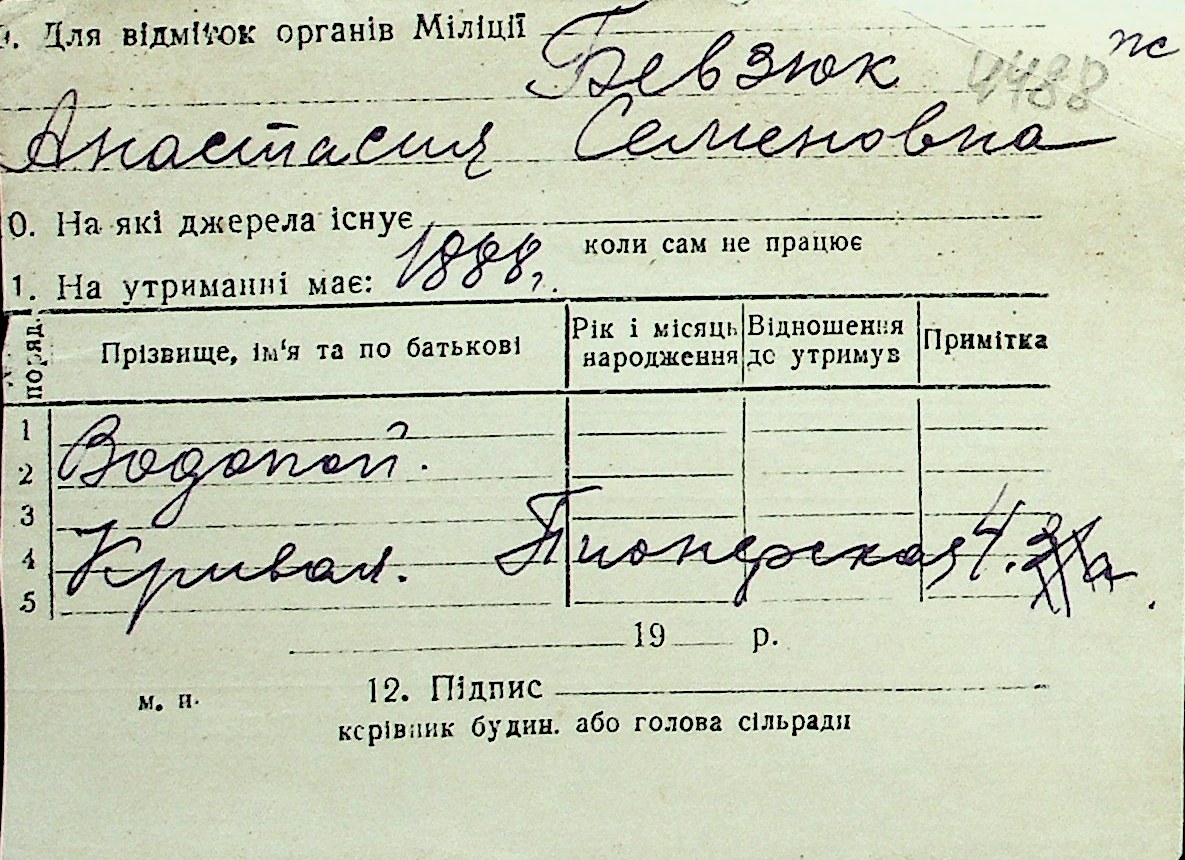 . Для відміток органів Міліції
Бевзюк 4488 пс
Анастасия Семеновна
0. На які джерела існує
коли сам не працює
1. На утриманні має: 1888 г.
поряд. Прізвище, ім'я та по батькові Рік і місяць народження Відношення до утримув Примітка
1
2 Водопой.
3
4 Кривая. Пионерская 4.
5
19 р.
м. п. 12. Підпис
керівник будин. або голова сільради